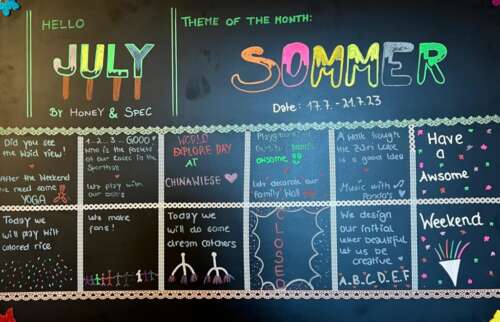 HELLO
JULY
BY HONEY & SPEC
THEME OF THE MONTH:
SOMMER
Date: 17.7. - 21.7.23
Did you see
the Waid view!
After the Weekend
we need some
YOGA
1...2...3...GOOO!
Who is the fastest
at our races in the
Sporthalle
We play with
our cars
WORLD
EXPLORE DAY
AT
CHINAWIESE
Playground at
awsome
We decorate our
Family Hall
A walk trough
the Züri Lake
is a good idea
Music with
Panda's
Have
a
Awsome
Weekend
Today we
will play with
colored rice
We make
fans!
Today we
will do some
dream catchers
CLOSED
We design
our initial
letter beautiful
let us be
creative
A.B.C.D.E.F